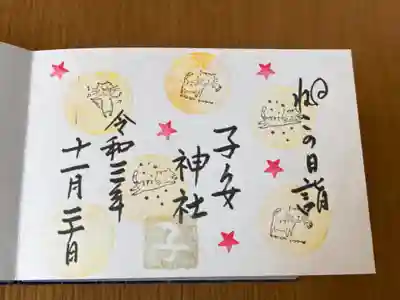 ねこの日詣
子安
神社
令和三年
十一月二十日
子